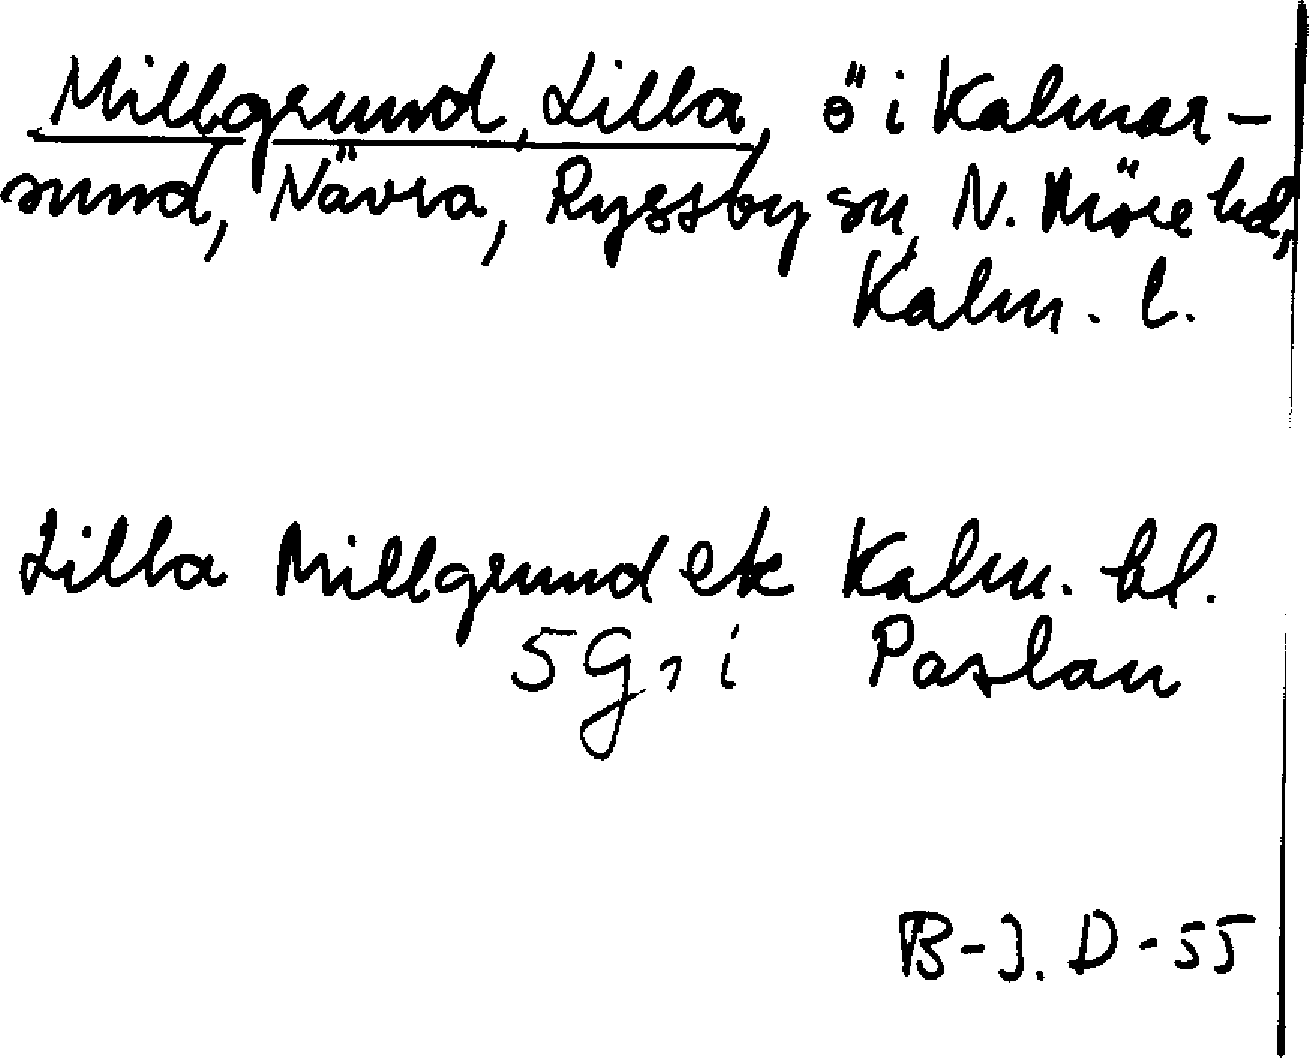 Millgrund, Lilla, ö i Kalmar-
sund, Nävra, Ryssby sn, N. Möre hd,
Kalm. l.
Lilla Millgrund ek Kalm. bl.
5 G, i Paslan
B-J. D-55